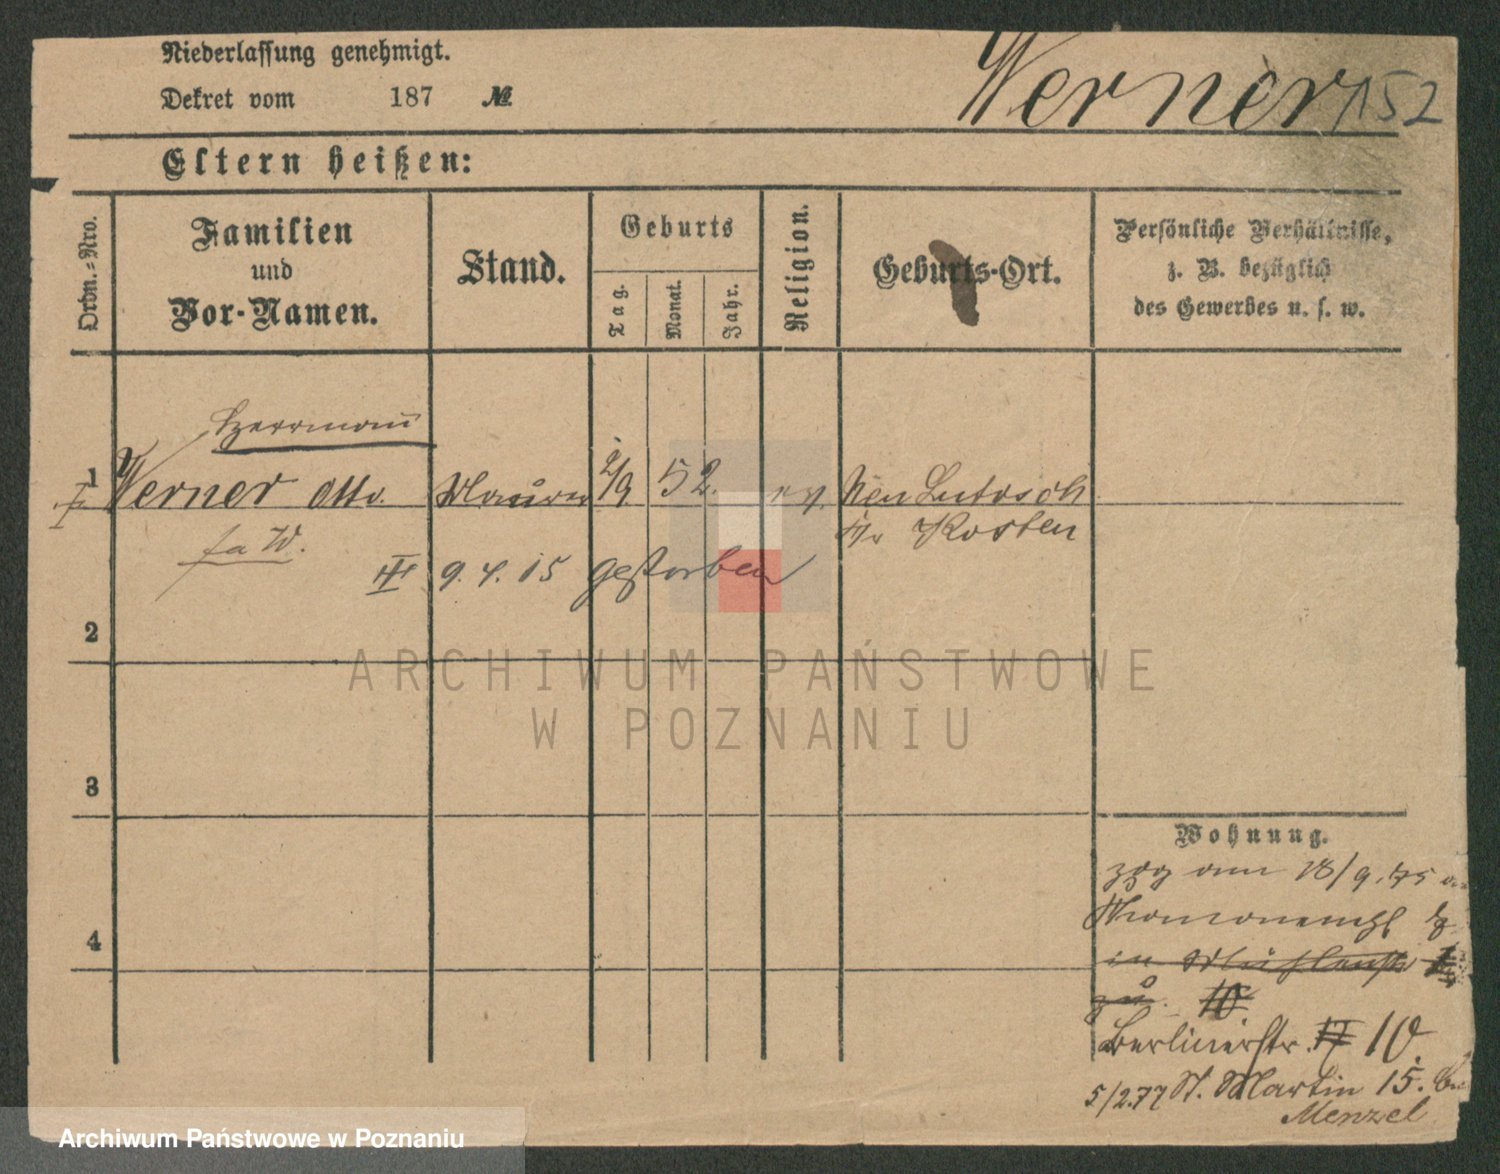 Niederlassung genehmigt.
Dekret vom 187 №
Werner 152
Eltern heißen:
Ordn.-Nro.
Familien und Vor-Namen.
Stand.
Geburts
Tag.
Monat.
Jahr.
Religion.
Geburts-Ort.
Persönliche Verhältnisse,
z. B. bezüglich
des Gewerbes u. s. w.
Herrmann
1 Werner Otto. Maurer 2/9 52. ev. Neu Lutosch
I. Kr Kosten
fa W.
III 9.4.15 gestorben
2
3
4
Wohnung.
zog am 18/9.75
in
zu. 10
Berlinerstr. 17 10.
5/2.77 St. Martin 15. b
Menzel
ARCHIWUM PAŃSTWOWE
W POZNANIU
Archiwum Państwowe w Poznaniu